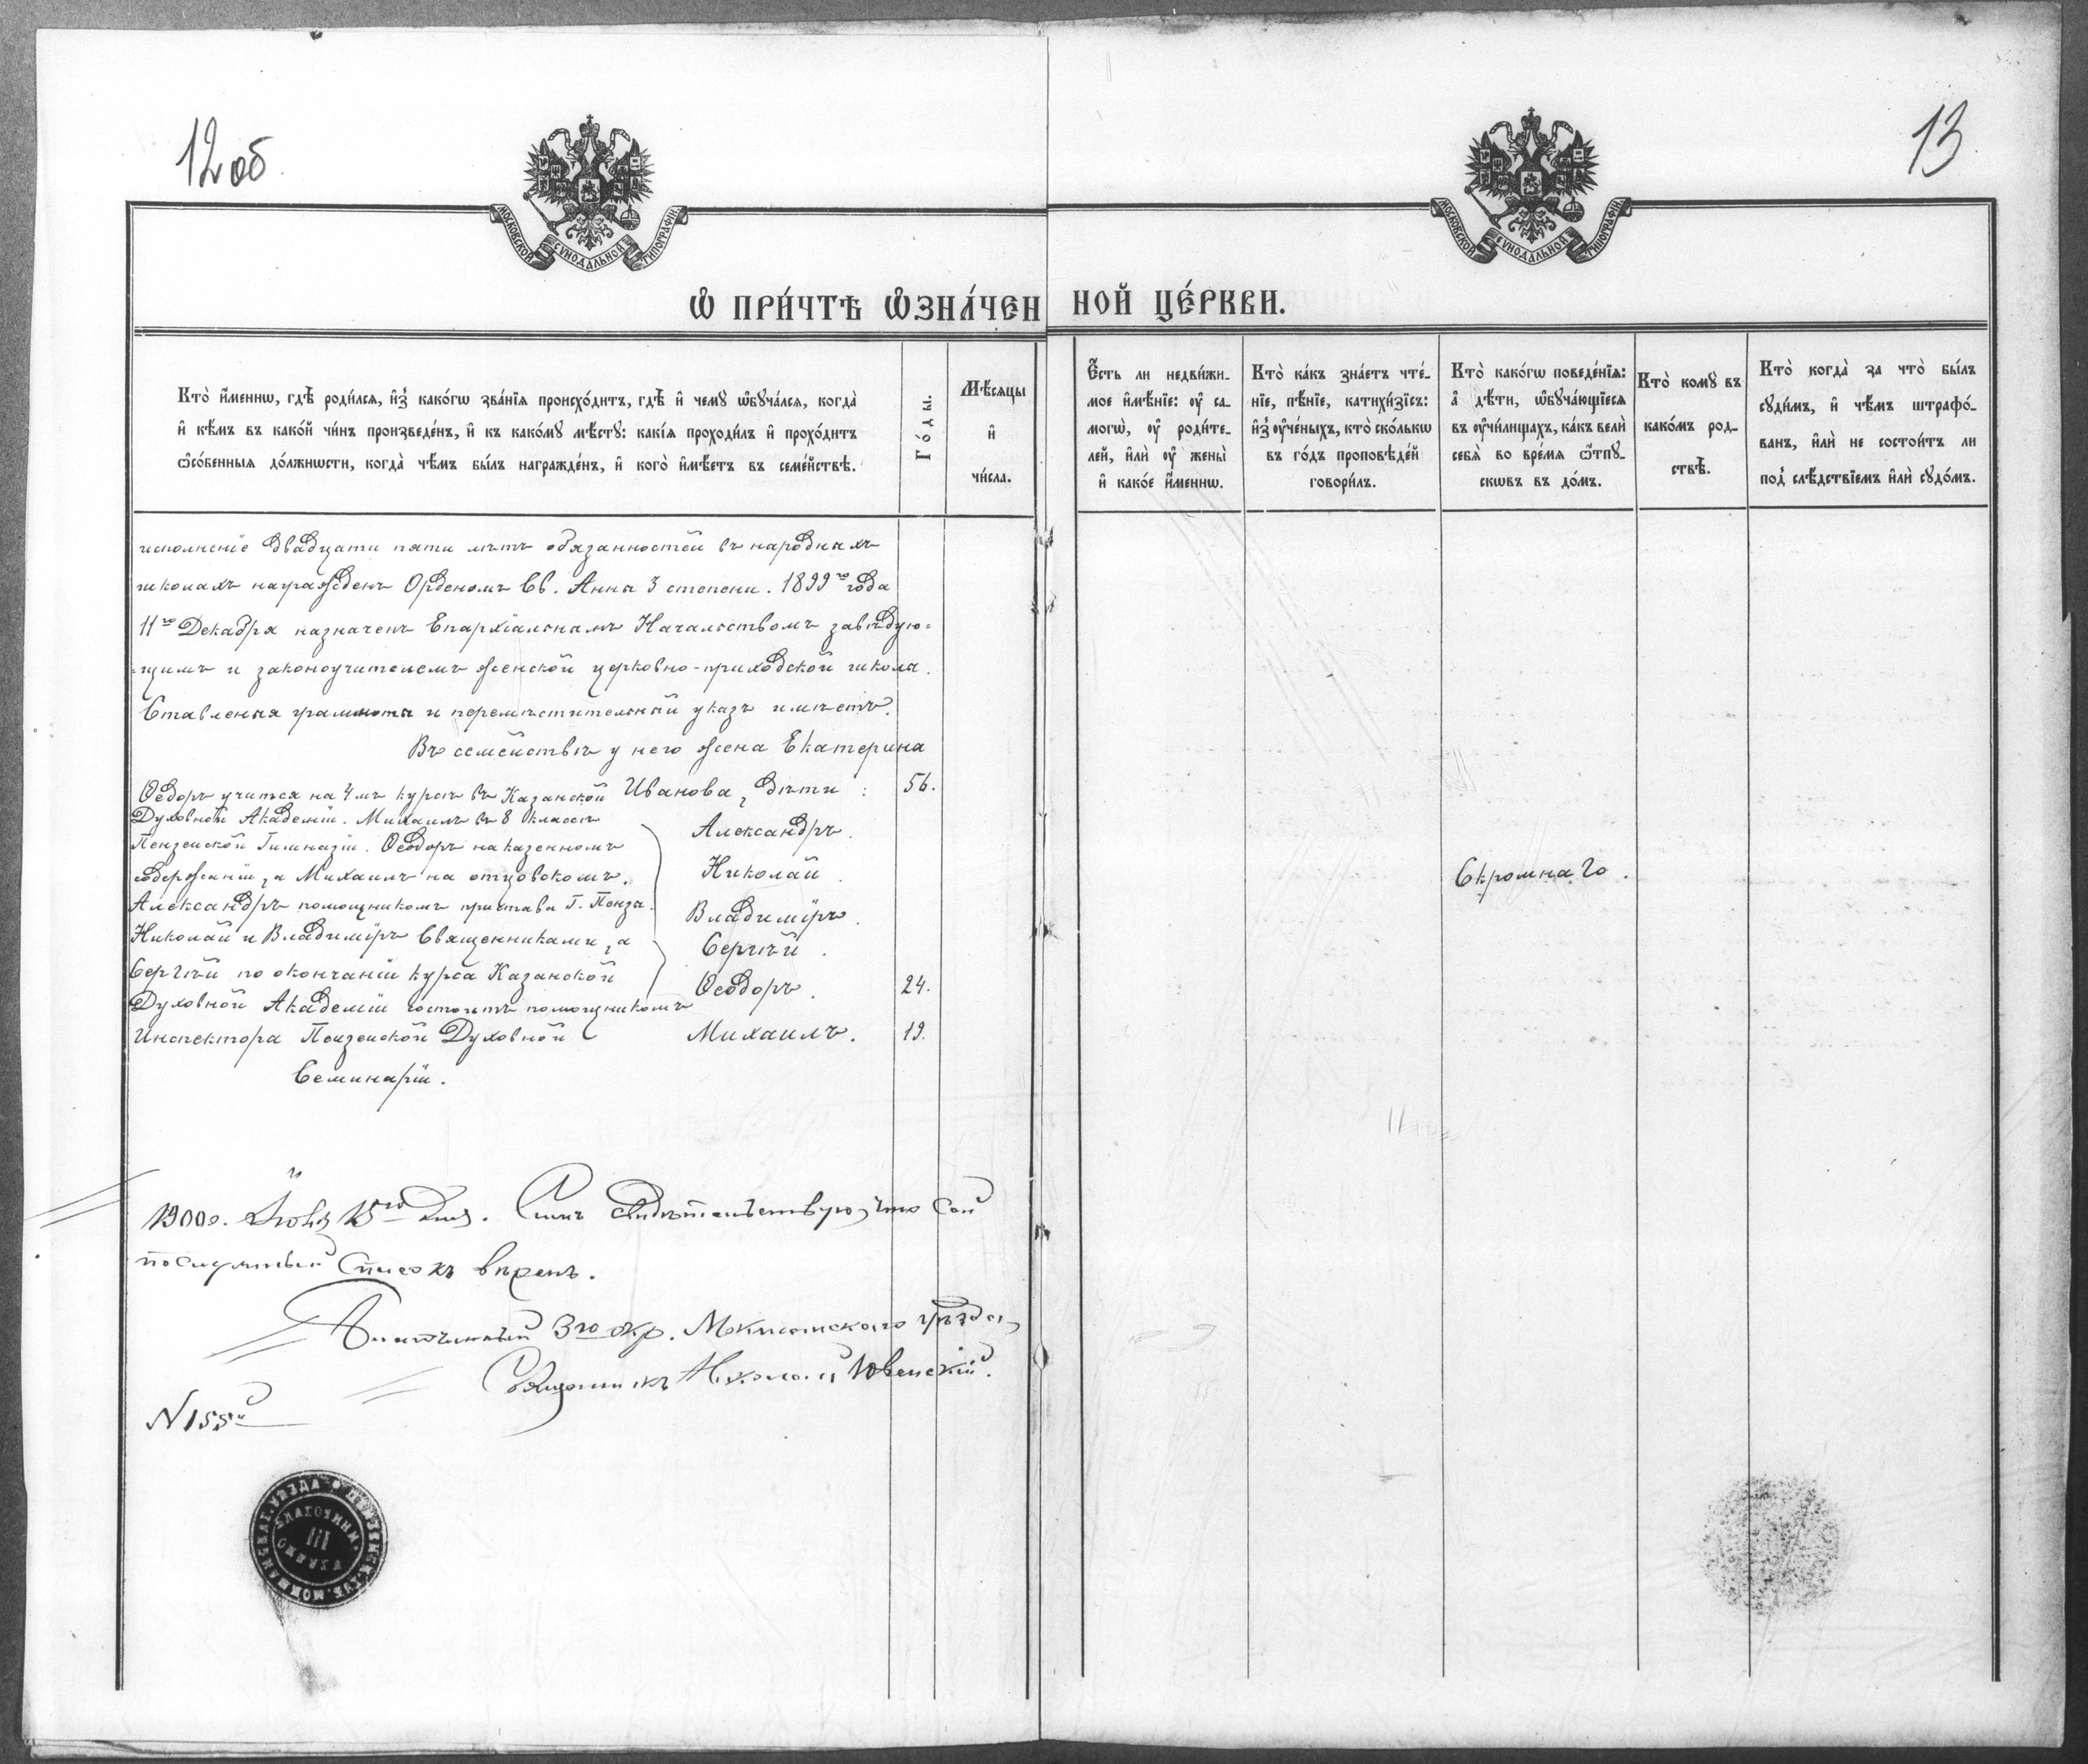 12 об
13
МОСКОВСКОЙ СѴНОДАЛЬНОЙ ТИПОГРАФІИ
МОСКОВСКОЙ СѴНОДАЛЬНОЙ ТИПОГРАФІИ
Ѡ҆ ПРИ́ЧТѢ Ѡ҆ЗНА́ЧЕННОЙ ЦЕ́РКВИ.
Кто̀ и҆́меннѡ, гдѣ̀ роди́лсѧ, и҆з̾ како́гѡ зва́нїѧ происхо́дитъ, гдѣ̀ и҆ чемꙋ̀ ѡ҆бꙋча́лсѧ, когда̀
и҆ кѣ́мъ въ како́й чи́нъ произведе́нъ, и҆ къ како́мꙋ мѣ́стꙋ: какі́ѧ проходи́лъ и҆ прохо́дитъ
ѻ҆со́бенныѧ до́лжнѡсти, когда̀ чѣ́мъ бы́лъ награжде́нъ, и҆ кого̀ и҆мѣ́етъ въ семе́йствѣ.
Го́ды.
Мѣ́сѧцы
и҆
чи́сла.
Е҆́сть ли недви́жи-
мое и҆мѣ́нїе: ᲂу҆ са-
могѡ̀, ᲂу҆ роди́те-
лей, и҆лѝ ᲂу҆ жены̀
и҆ како́е и҆́меннѡ.
Кто̀ ка́къ зна́етъ чте́-
нїе, пѣ́нїе, катихи́зїсъ:
и҆з̾ ᲂу҆че́ныхъ, кто̀ ско́лькѡ
въ го́дъ проповѣ́дей
говори́лъ.
Кто̀ како́гѡ поведе́нїѧ:
а҆ дѣ́ти, ѡ҆бꙋча́ющїесѧ
въ ᲂу҆чи́лищахъ, ка́къ велѝ
себѧ̀ во вре́мѧ ѿпꙋ-
скѡвъ въ до́мъ.
Кто̀ комꙋ̀ въ
како́мъ род-
ствѣ̀.
Кто̀ когда̀ за что̀ бы́лъ
сꙋди́мъ, и҆ чѣ́мъ штрафо́-
ванъ, и҆лѝ не состои́тъ ли
под̾ слѣ́дствїемъ и҆лѝ сꙋдо́мъ.
исполненіе двадцати пяти лѣтъ обязанностей въ народныхъ
школахъ награжденъ Орденомъ Св. Анны 3 степени. 1899го года
11го Декабря назначенъ Епархіальнымъ Начальствомъ завѣдую=
=щимъ и законоучителемъ женской церковно-приходской школы.
Ставленыя граммоты и перемѣстительный указъ имѣетъ.
Въ семействѣ у него жена Екатерина
Иванова, дѣти: 56.
Ѳеодоръ учится на 4мъ курсѣ въ Казанской
Духовной Академіи. Михаилъ въ 8 классѣ
Пензенской Гимназіи. Ѳеодоръ на казенномъ
содержаніи, а Михаилъ на отцовскомъ.
Александръ помощникомъ пристава г. Пензы.
Николай и Владиміръ Священниками, а
Сергѣй по окончаніи курса Казанской
Духовной Академіи состоитъ помощникомъ
Инспектора Пензенской Духовной
Семинаріи.
Александръ.
Николай.
Владиміръ.
Сергѣй.
Ѳеодоръ. 24.
Михаилъ. 19.
Скромнаго.
1900 г. 15го дня. Симъ свидѣтельствую, что сей
послужный списокъ вѣренъ.
Благочинный 3го окр. Мокшанского уѣзда,
Священникъ Николай
N 155й
III